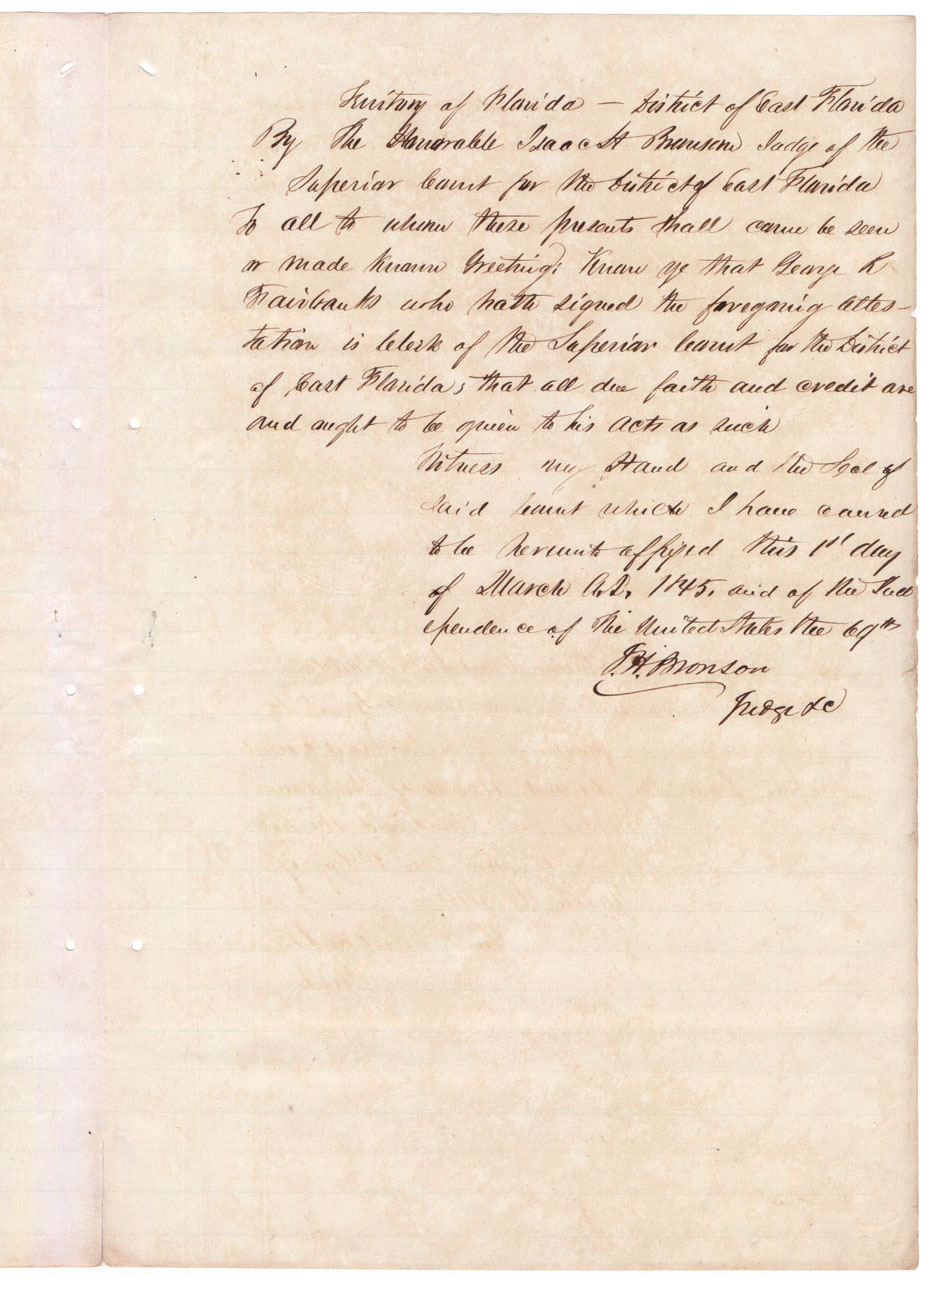 Territory of Florida — District of East Florida
By the Honorable Isaac H Bronson Judge of the
Superior Court for the District of East Florida
To all to whom these presents shall come be seen
or made known Greeting; Know ye that George R
Fairbanks who hath signed the foregoing attes-
tation is Clerk of the Superior Court for the District
of East Florida; that all due faith and credit are
and ought to be given to his acts as such
Witness my Hand and the Seal of
said Court which I have caused
to be hereunto affixed this 1st day
of March A.D. 1845. and of the Ind
ependence of the United States the 69th
I. H. Bronson
Judge &c